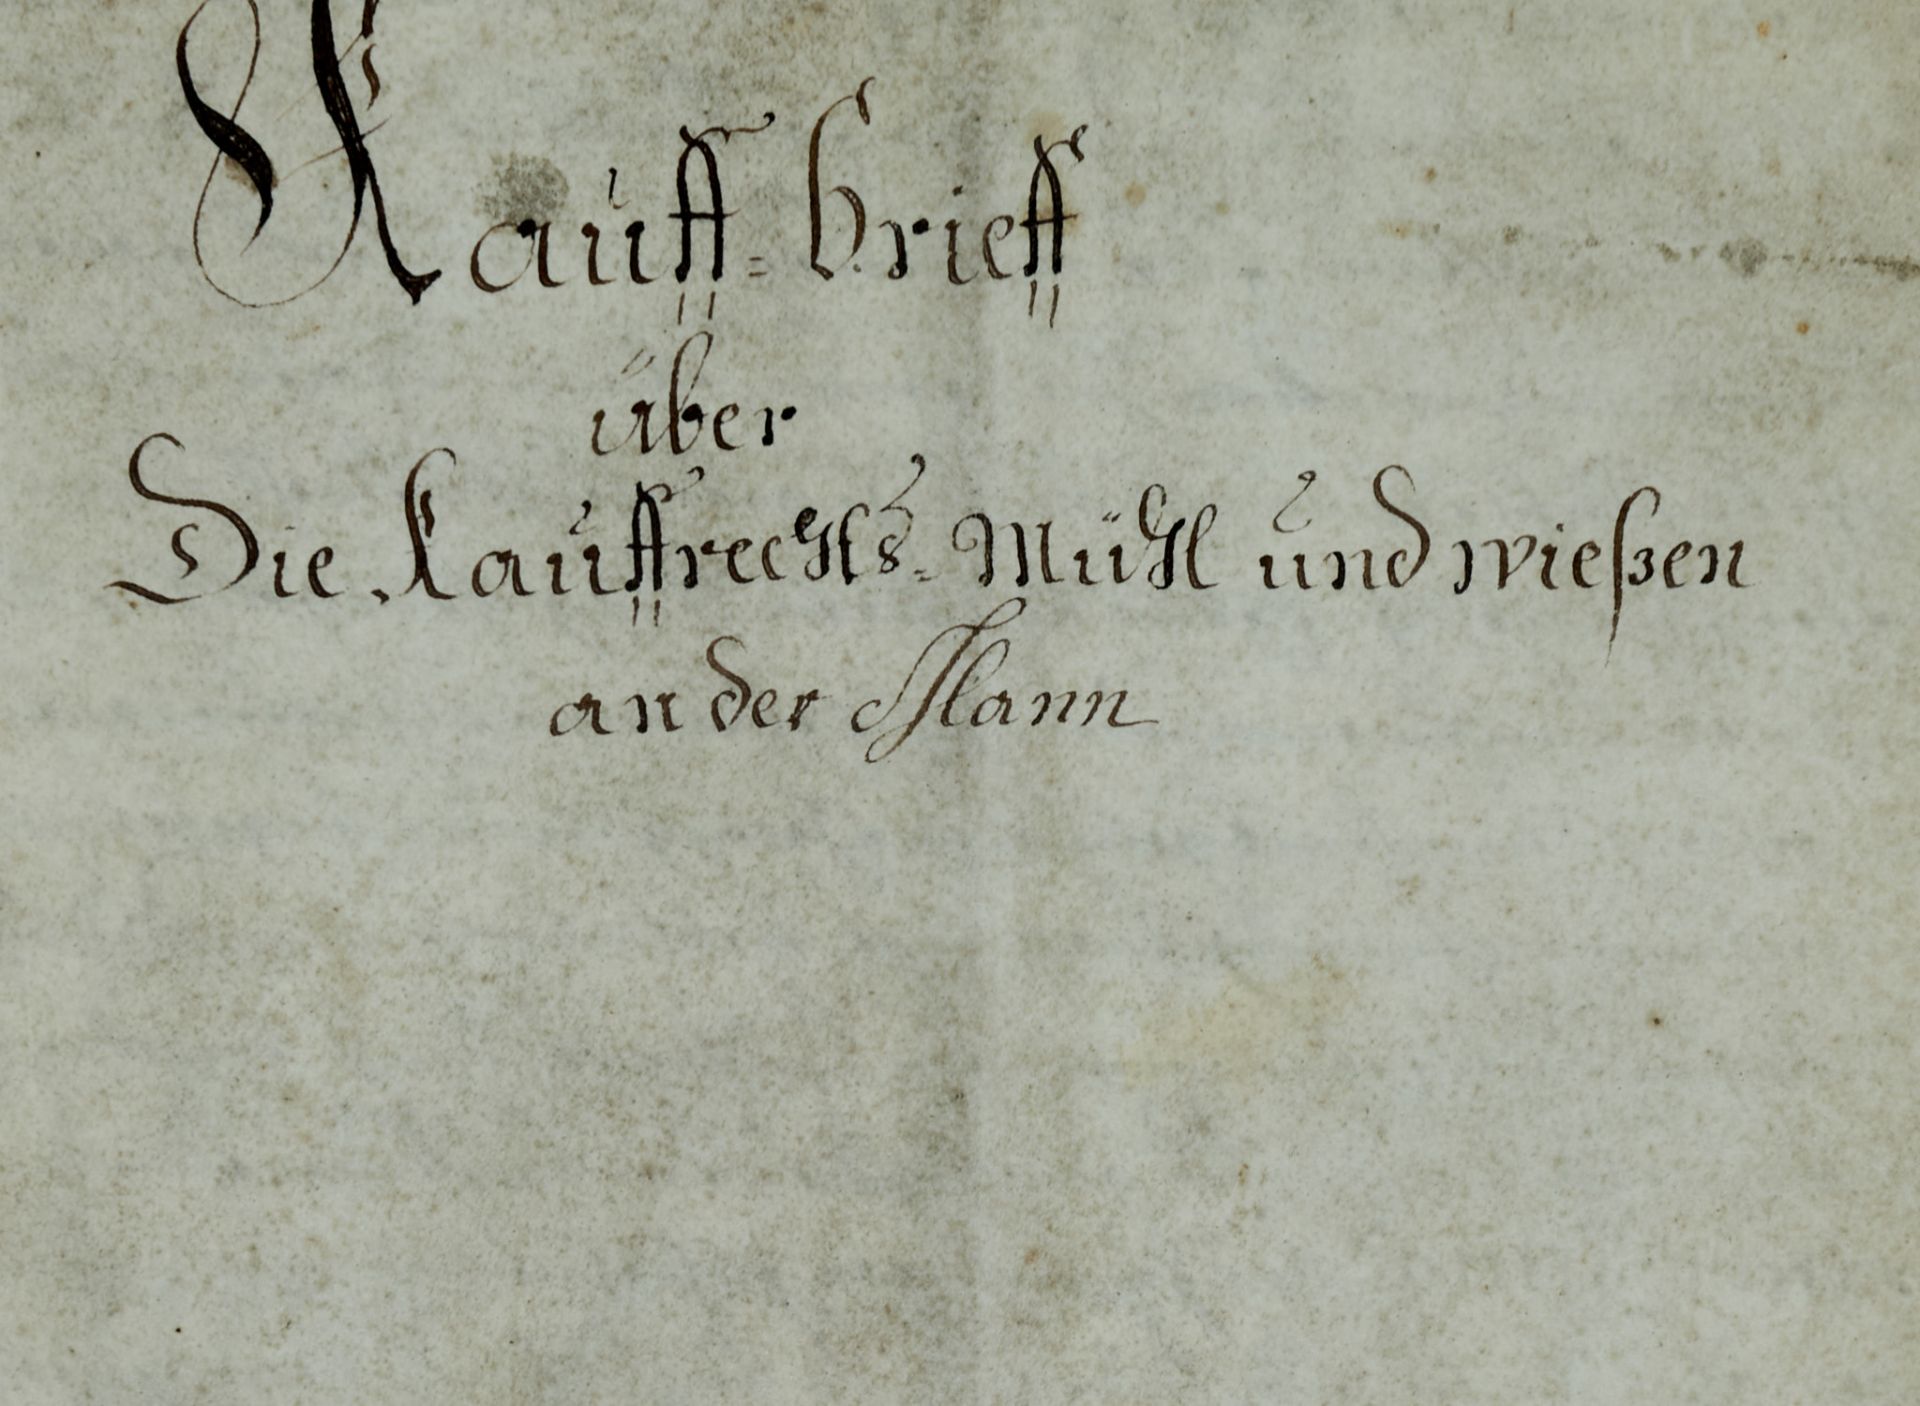 Kauff-brieff
über
Die Kauffrechts-Mühl und wießen
an der Ilann